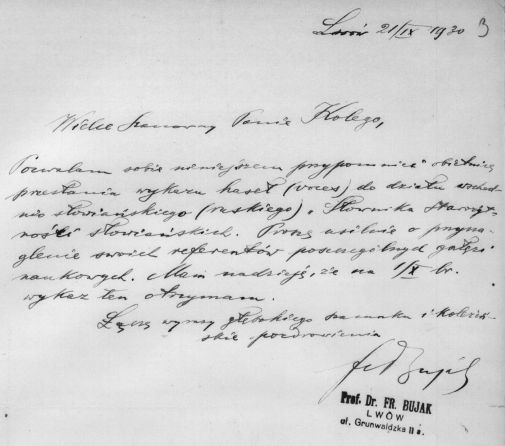 Lwów 21/IX 1930 3
Wielce Szanowny Panie Kolego,
Pozwalam sobie niniejszem przypomnieć obietnicę
przesłania wykazu haseł (voces) do działu wschod-
nio słowiańskiego (ruskiego), Słownika Starożyt-
ności słowiańskich. Proszę usilnie o przyna-
glenie swoich referentów poszczególnych gałęzi
naukowych. Mam nadzieję, że na 1/X br.
wykaz ten otrzymam.
Łączę wyrazy głębokiego szacunku i koleżeń-
skie pozdrowienia
Fr Bujak
Prof. Dr. FR. BUJAK
LWÓW
ul. Grunwaldzka 11 a.